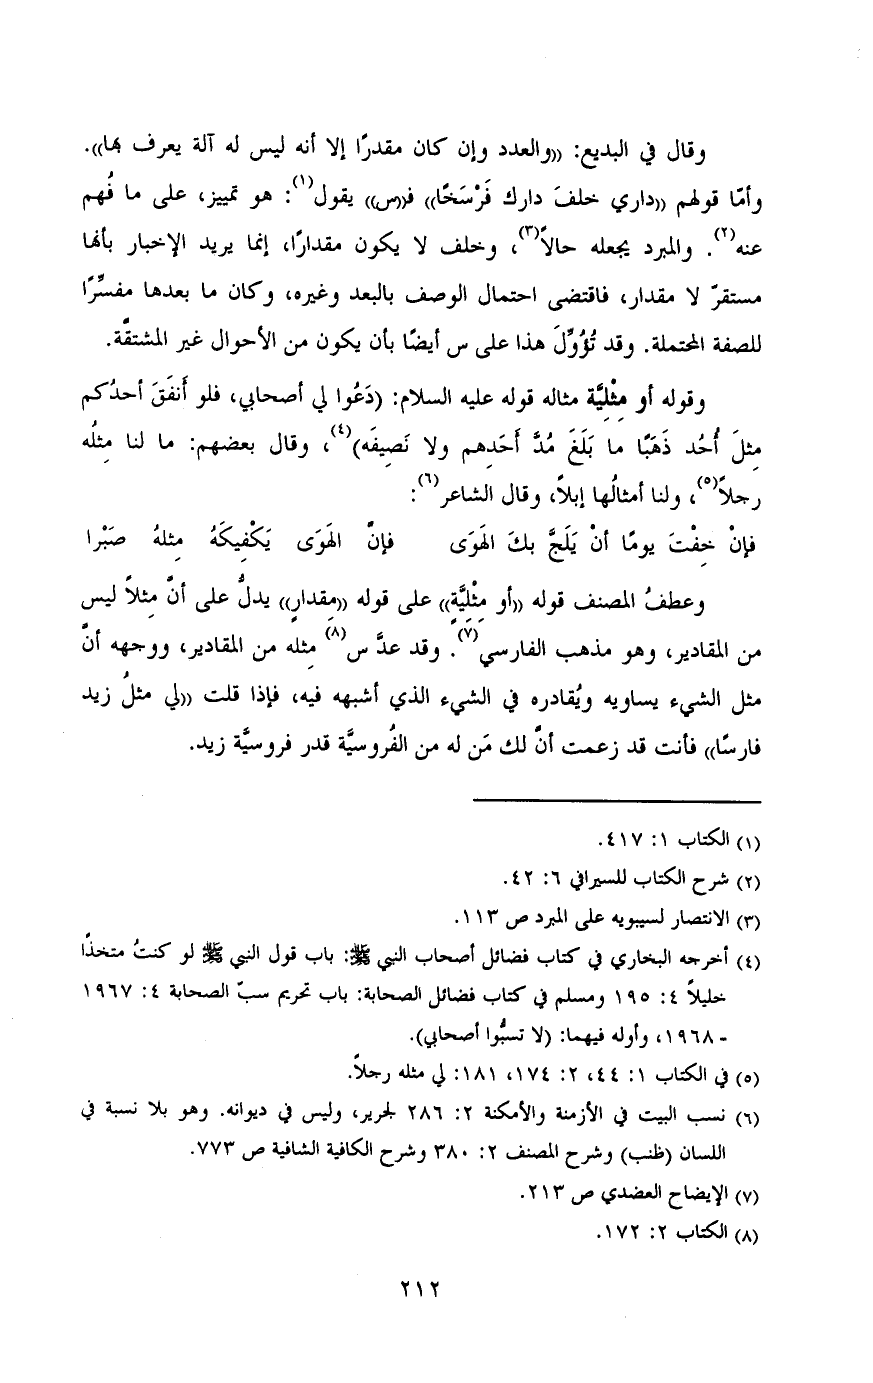 وقال في البديع: ((والعدد وإن كان مقدرًا إلا أنه ليس له آلة يعرف بها)).
وأمّا قولهم ((داري خلفَ دارك فَرْسَخًا)) فـ((س)) يقول(١): هو تمييز، على ما فُهم
عنه(٢). والمبرد يجعله حالاً(٣)، وخلف لا يكون مقدارًا، إنما يريد الإخبار بأنها
مستقرّ لا مقدار، فاقتضى احتمال الوصف بالبعد وغيره، وكان ما بعدها مفسِّرًا
للصفة المحتملة. وقد تُؤُوِّلَ هذا على س أيضًا بأن يكون من الأحوال غير المشتقَّة.
وقوله أو مِثْليَّة مثاله قوله عليه السلام: (دَعُوا لي أصحابي، فلو أَنفَقَ أحدُكم
مِثلَ أُحُد ذَهَبًا ما بَلَغَ مُدَّ أَحَدِهم ولا نَصِيفَه)(٤)، وقال بعضهم: ما لنا مِثلُه
رجلاً(٥)، ولنا أمثالُها إبلاً، وقال الشاعر(٦):
فإنْ خِفْتَ يومًا أنْ يَلَجَّ بكَ الهَوَى فإنَّ الهَوَى يَكْفِيكَهُ مِثلهُ صَبْرا
وعطفُ المصنف قوله ((أو مِثْليَّةٍ)) على قوله ((مقدارٍ)) يدلُّ على أنَّ مِثلاً ليس
من المقادير، وهو مذهب الفارسي(٧). وقد عدَّ س(٨) مثله من المقادير، ووجهه أنَّ
مثل الشيء يساويه ويُقادره في الشيء الذي أشبهه فيه، فإذا قلت ((لي مثلُ زيد
فارسًا)) فأنت قد زعمت أنَّ لك مَن له من الفُروسيَّة قدر فروسيَّة زيد.
(١) الكتاب ١: ٤١٧.
(٢) شرح الكتاب للسيرافي ٦: ٤٢.
(٣) الانتصار لسيبويه على المبرد ص ١١٣.
(٤) أخرجه البخاري في كتاب فضائل أصحاب النبي ﷺ: باب قول النبي ﷺ لو كنتُ متخذًا
خليلاً ٤: ١٩٥ ومسلم في كتاب فضائل الصحابة: باب تحريم سبّ الصحابة ٤: ١٩٦٧
- ١٩٦٨، وأوله فيهما: (لا تسبُّوا أصحابي).
(٥) في الكتاب ١: ٤٤، ٢: ١٧٤، ١٨١: لي مثله رجلاً.
(٦) نسب البيت في الأزمنة والأمكنة ٢: ٢٨٦ لجرير، وليس في ديوانه. وهو بلا نسبة في
اللسان (ظنب) وشرح المصنف ٢: ٣٨٠ وشرح الكافية الشافية ص ٧٧٣.
(٧) الإيضاح العضدي ص ٢١٣.
(٨) الكتاب ٢: ١٧٢.
٢١٢